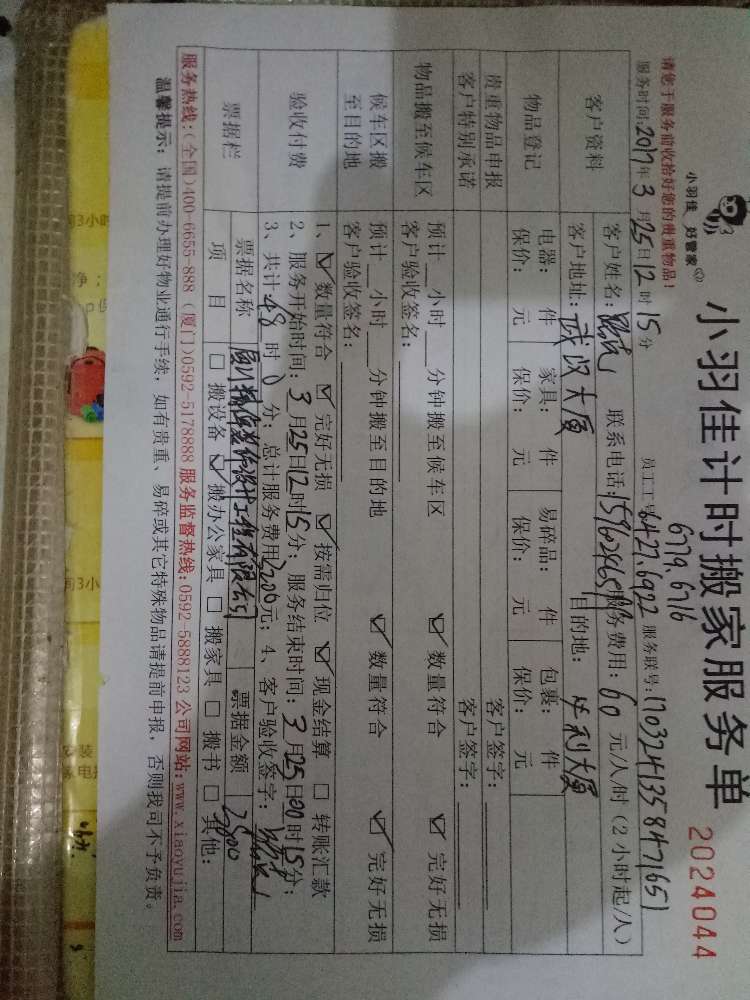 小羽佳 好管家
小羽佳计时搬家服务单
2024044
请您于服务前收拾好您的贵重物品!
6779.6716
服务时间:2017年3月25日12时15分 员工工号:6427.6922 服务联号:1703241358471651
客户资料
客户姓名: 联系电话: 服务费用:60元/人/时(2小时起/人)
客户地址:武汉大厦 目的地:华利大厦
物品登记
电器: 件 家具: 件 易碎品: 件 包裹: 件
保价: 元 保价: 元 保价: 元 保价: 元
贵重物品申报 客户签字:
客户特别承诺 客户签字:
物品搬至候车区
预计__小时__分钟搬至候车区 ☑数量符合 ☑完好无损
客户验收签名:
候车区搬至目的地
预计__小时__分钟搬至目的地 ☑数量符合 ☑完好无损
客户验收签名:
验收付费
1、☑数量符合 ☑完好无损 ☑按需归位 ☑现金结算 □转账汇款
2、服务开始时间:3月25日12时15分;服务结束时间:3月25日00时15分;
3、共计48时0分;总计服务费用2200元;4、客户验收签字:
票据栏
票据名称 票据金额
项目 □搬设备 ☑搬办公家具 □搬家具 □搬书 □其他:
服务热线:(全国)400-6655-888(厦门)0592-5178888 服务监督热线:0592-5888123 公司网站:www.xiaoyujia.com
温馨提示:请提前办理好物业通行手续,如有贵重、易碎或其它特殊物品请提前申报,否则我司不予负责。